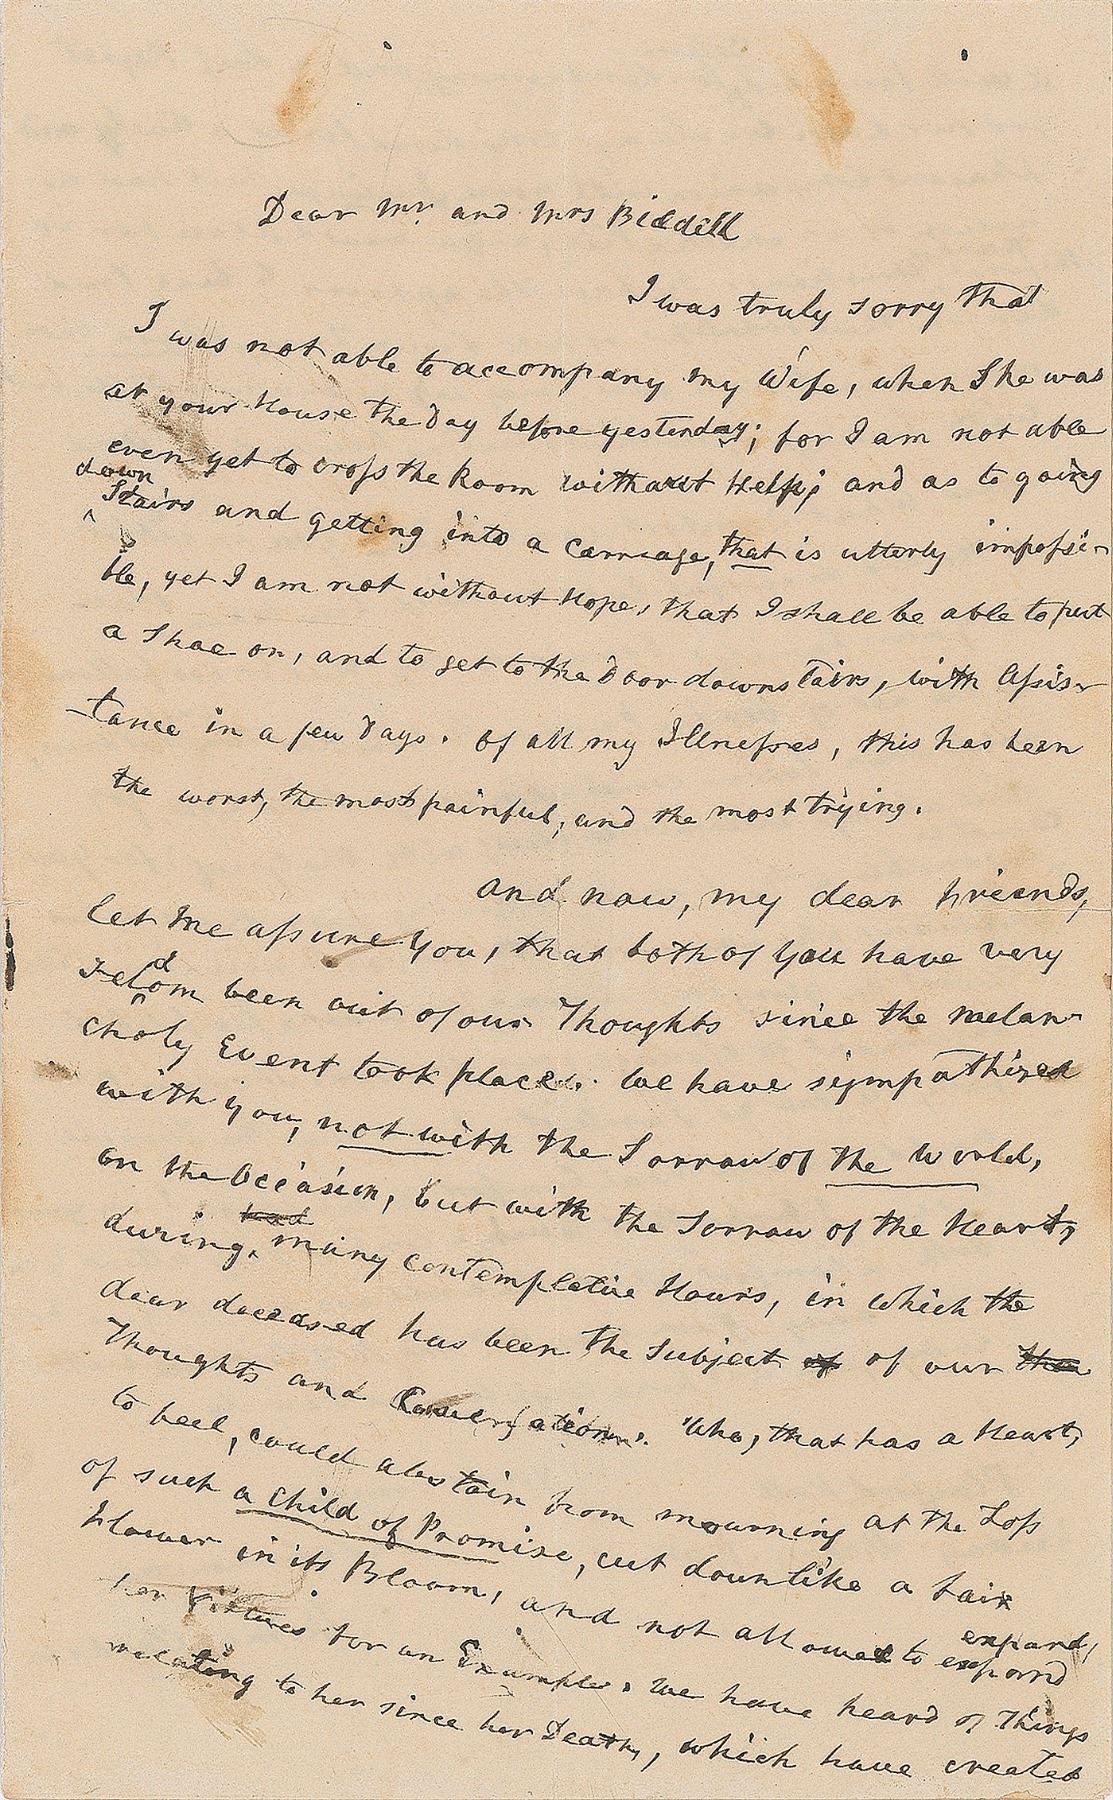 Dear Mr. and Mrs Biddell
I was truly sorry that
I was not able to accompany my Wife, when She was
at your House the Day before yesterday; for I am not able
even yet to cross the Room without Help; and as to going
down
Stairs and getting into a Carriage, that is utterly impossi-
ble, yet I am not without Hope, that I shall be able to put
a Shoe on, and to get to the Door downstairs, with Assis-
tance in a few Days. Of all my Illnesses, this has been
the worst, the most painful, and the most trying.
And now, my dear Friends,
let me assure You, that both of you have very
Seldom been out of our Thoughts since the melan-
choly Event took place. We have sympathized
with you, not with the Sorrow of the World,
on the Occasion, but with the Sorrow of the Heart,
during had many contemplative Hours, in which the
dear deceased has been the Subject of of our
Thoughts and Conversations. Who, that has a Heart,
to feel, could abstain from mourning at the Loss
of such a Child of Promise, cut down like a fair
Flower in its Bloom, and not allowed to expand,
her Virtues for an Example. We have heard of Things
relating to her since her Death, which have created